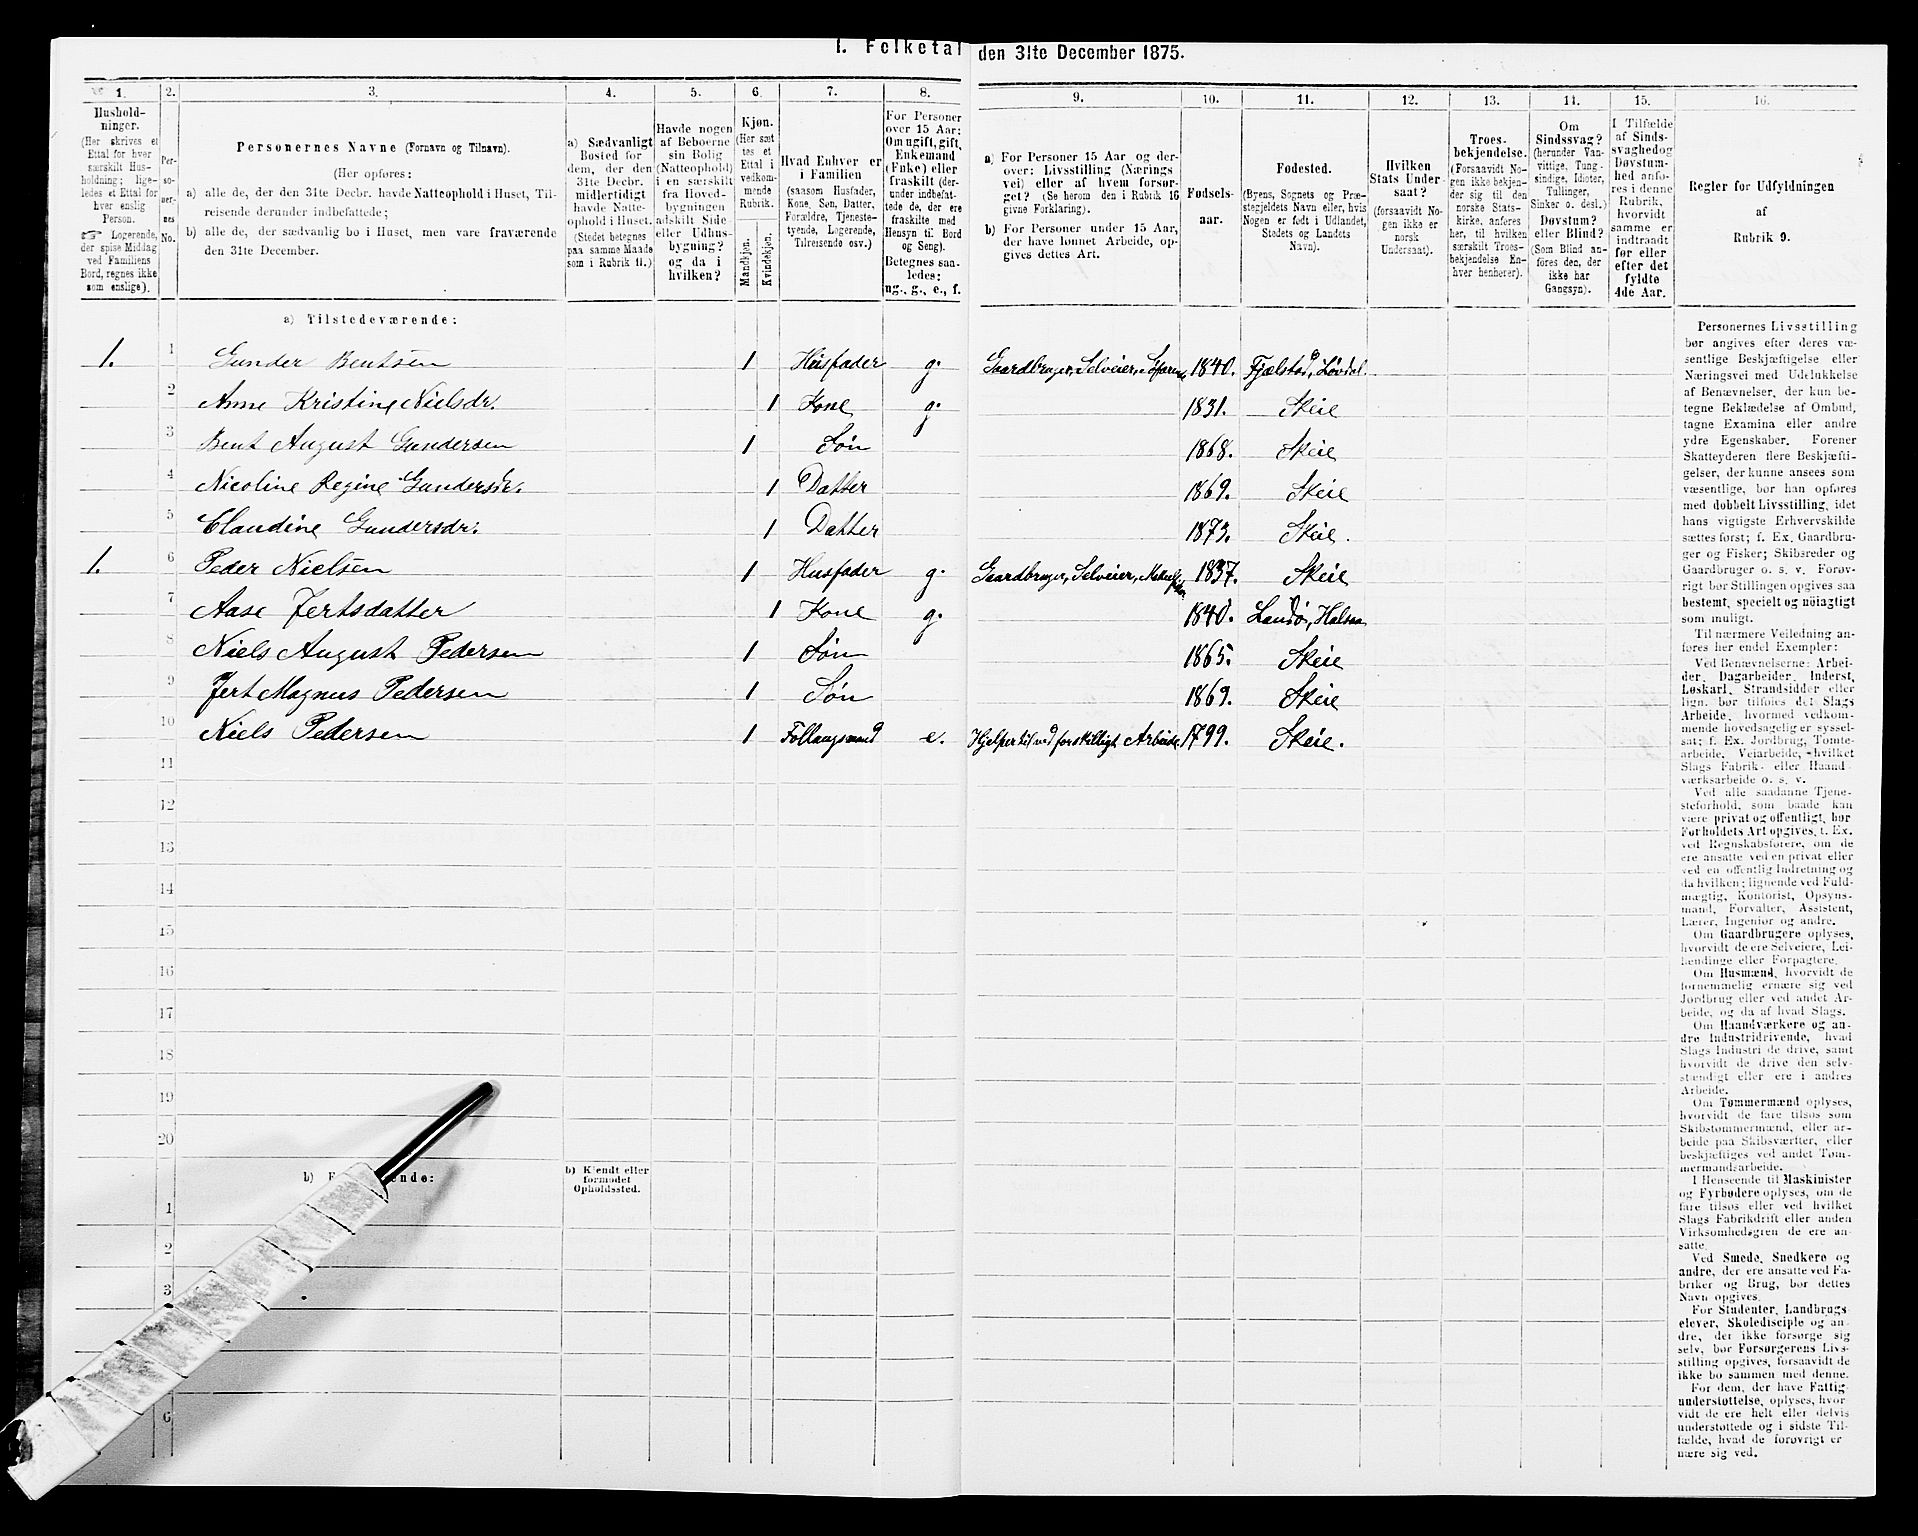 1. Folketal den 31te December 1875.
1. 2. 3. 4. 5. 6. 7. 8. 9. 10. 11. 12. 13. 14. 15. 16.
Hushold-
ninger.
(Her skrives et
Ettal for hver
særskilt Hus-
holdning; lige-
ledes et Ettal for
hver enslig
Person.
☞ Logerende,
der spise Middag
ved Familiens
Bord, regnes ikke
som enslige).
Per-
so-
ner-
nes
No.
Personernes Navne (Fornavn og Tilnavn).
(Her opføres:
a) alle de, der den 31te Decbr. havde Natteophold i Huset, Til-
reisende derunder indbefattede;
b) alle de, der sædvanlig bo i Huset, men vare fraværende
den 31te December.
a) Sædvanligt
Bosted for
dem, der den
31te Decbr.
midlertidigt
havde Natte-
ophold i Huset.
(Stedet betegnes
paa samme Maade
som i Rubrik 11.)
Havde nogen
af Beboerne
sin Bolig
(Natteophold)
i en særskilt
fra Hoved-
bygningen
adskilt Side-
eller Udhus-
bygning?
og da i
hvilken?
Kjøn.
(Her sæt-
tes et
Ettal i
vedkom-
mende
Rubrik.
Mandkjøn.
Kvindekjøn.
Hvad Enhver er
i Familien
(saasom Husfader,
Kone, Søn, Datter,
Forældre, Tjeneste-
tyende, Logerende,
Tilreisende osv.)
For Personer
over 15 Aar:
Om ugift, gift,
Enkemand
(Enke) eller
fraskilt (der-
under indbefat-
tede de, der ere
fraskilte med
Hensyn til Bord
og Seng).
Betegnes saa-
ledes:
ug., g., e., f.
a) For Personer 15 Aar og der-
over: Livsstilling (Nærings-
vei) eller af hvem forsør-
get? (Se herom den i Rubrik 16
givne Forklaring).
b) For Personer under 15 Aar,
der have lønnet Arbeide, op-
gives dettes Art.
Fødsels-
aar.
Fødested.
(Byens, Sognets og Præ-
stegjeldets Navn eller, hvis
Nogen er født i Udlandet,
Stedets og Landets
Navn).
Hvilken
Stats Under-
saat?
(forsaavidt No-
gen ikke er
norsk
Undersaat).
Troes-
bekjendelse.
(Forsaavidt No-
gen ikke bekjen-
der sig til den
norske Stats-
kirke, anføres
her, til hvilken
særskilt Troes-
bekjendelse En-
hver henhører).
Om
Sindssvag?
(herunder Van-
vittige, Tung-
sindige, Idioter,
Tullinger,
Sinker o. desl.)
Døvstum?
eller Blind?
(Som Blind an-
føres den, der
ikke har
Gangsyn).
I Tilfælde
af Sinds-
svaghed og
Døvstum-
hed anfø-
res i denne
Rubrik,
hvorvidt
samme er
indtraadt
før eller
efter det
fyldte
4de Aar.
Regler for Udfyldningen
af
Rubrik 9.
a) Tilstedeværende:
1. 1 Gunder Bentsen 1 Husfader g. Gaardbruger, Selveier, 1840. Fjælstad, Løvdal.
2 Anne Kristine Nielsdr. 1 Kone g. 1831. Skeie
3 Bent August Gundersen 1 Søn 1868. Skeie
4 Nicoline Regine Gundersdr. 1 Datter 1869. Skeie
5 Claudine Gundersdr. 1 Datter 1873. Skeie.
1. 6 Peder Nielsen 1 Husfader g. Gaardbruger, Selveier, 1837. Skeie
7 Aase Jertsdatter 1 Kone g. 1840. Landø, Halsaa
8 Niels August Pedersen 1 Søn 1865. Skeie
9 Jert Magnus Pedersen 1 Søn 1869. Skeie
10 Niels Pedersen 1 Føllaugsmand e. Hjelper til ved forskelligt Arbeide. 1799. Skeie.
11
12
13
14
15
16
17
18
19
20
b) F ende:
b) Kjendt eller
formodet
Opholdssted.
1
2
3
6
Personernes Livsstilling
bør angives efter deres væ-
sentlige Beskjæftigelse eller
Næringsvei med Udelukkelse
af Benævnelser, der kun be-
tegne Beklædelse af Ombud,
tagne Examina eller andre
ydre Egenskaber. Forener
Skatteyderen flere Beskjæfti-
gelser, der kunne ansees som
væsentlige, bør han opføres
med dobbelt Livsstilling, idet
hans vigtigste Erhvervskilde
sættes først; f. Ex. Gaardbru-
ger og Fisker; Skibsreder og
Gaardbruger o. s. v. Forøv-
rigt bør Stillingen opgives saa
bestemt, specielt og nöiagtigt
som muligt.
Til nærmere Veiledning an-
føres her endel Exempler:
Ved Benævnelserne: Arbei-
der, Dagarbeider, Inderst,
Løskarl, Strandsidder eller
lign. bør tilføies det Slags
Arbeide, hvormed vedkom-
mende hovedsagelig er syssel-
sat; f. Ex. Jordbrug, Tomte-
arbeide, Veiarbeide, hvilket
Slags Fabrik- eller Haand-
værksarbeide o. s. v.
Ved alle saadanne Tjene-
steforhold, som baade kan
være privat og offentligt, bør
Forholdets Art opgives, t. Ex.
ved Regnskabsførere, om de
ere ansatte ved en privat eller
ved en offentlig Indretning og
da hvilken; lignende ved Fuld-
mægtig, Kontorist, Opsyns-
mand, Forvalter, Assistent,
Lærer, Ingeniør og andre.
Om Gaardbrugere oplyses,
hvorvidt de ere Selveiere, Lei-
lændinge eller Forpagtere.
Om Husmænd, hvorvidt de
fornemmelig ernære sig ved
Jordbrug eller ved andet Ar-
beide, og da af hvad Slags.
Om Haandværkere og an-
dre Industridrivende, hvad
Slags Industri de drive, samt
hvorvidt de drive den selv-
stændigt eller ere i andres
Arbeide.
Om Tømmermænd oplyses,
hvorvidt de fare tilsøs som
Skibstømmermænd, eller ar-
beide paa Skibsværfter, eller
beskjæftiges ved andet Tøm-
mermandsarbeide.
I Henseende til Maskinister
og Fyrbødere oplyses, om de
fare tilsøs eller ved hvilket
Slags Fabrikdrift eller anden
Virksomhedsgren de ere an-
satte.
Ved Smede, Snedkere og
andre, der ere ansatte ved Fa-
briker og Brug, bør dettes
Navn opgives.
For Studenter, Landbrugs-
elever, Skoledisciple og an-
dre, der ikke forsørge sig
selv, bør Forsørgerens Livs-
stilling opgives, forsaavidt de
ikke bo sammen med denne.
For dem, der have Fattig-
understøttelse, oplyses, hvor-
vidt de ere helt eller delvis
understøttede og i sidste Til-
fælde, hvad de forøvrigt er-
nære sig ved.